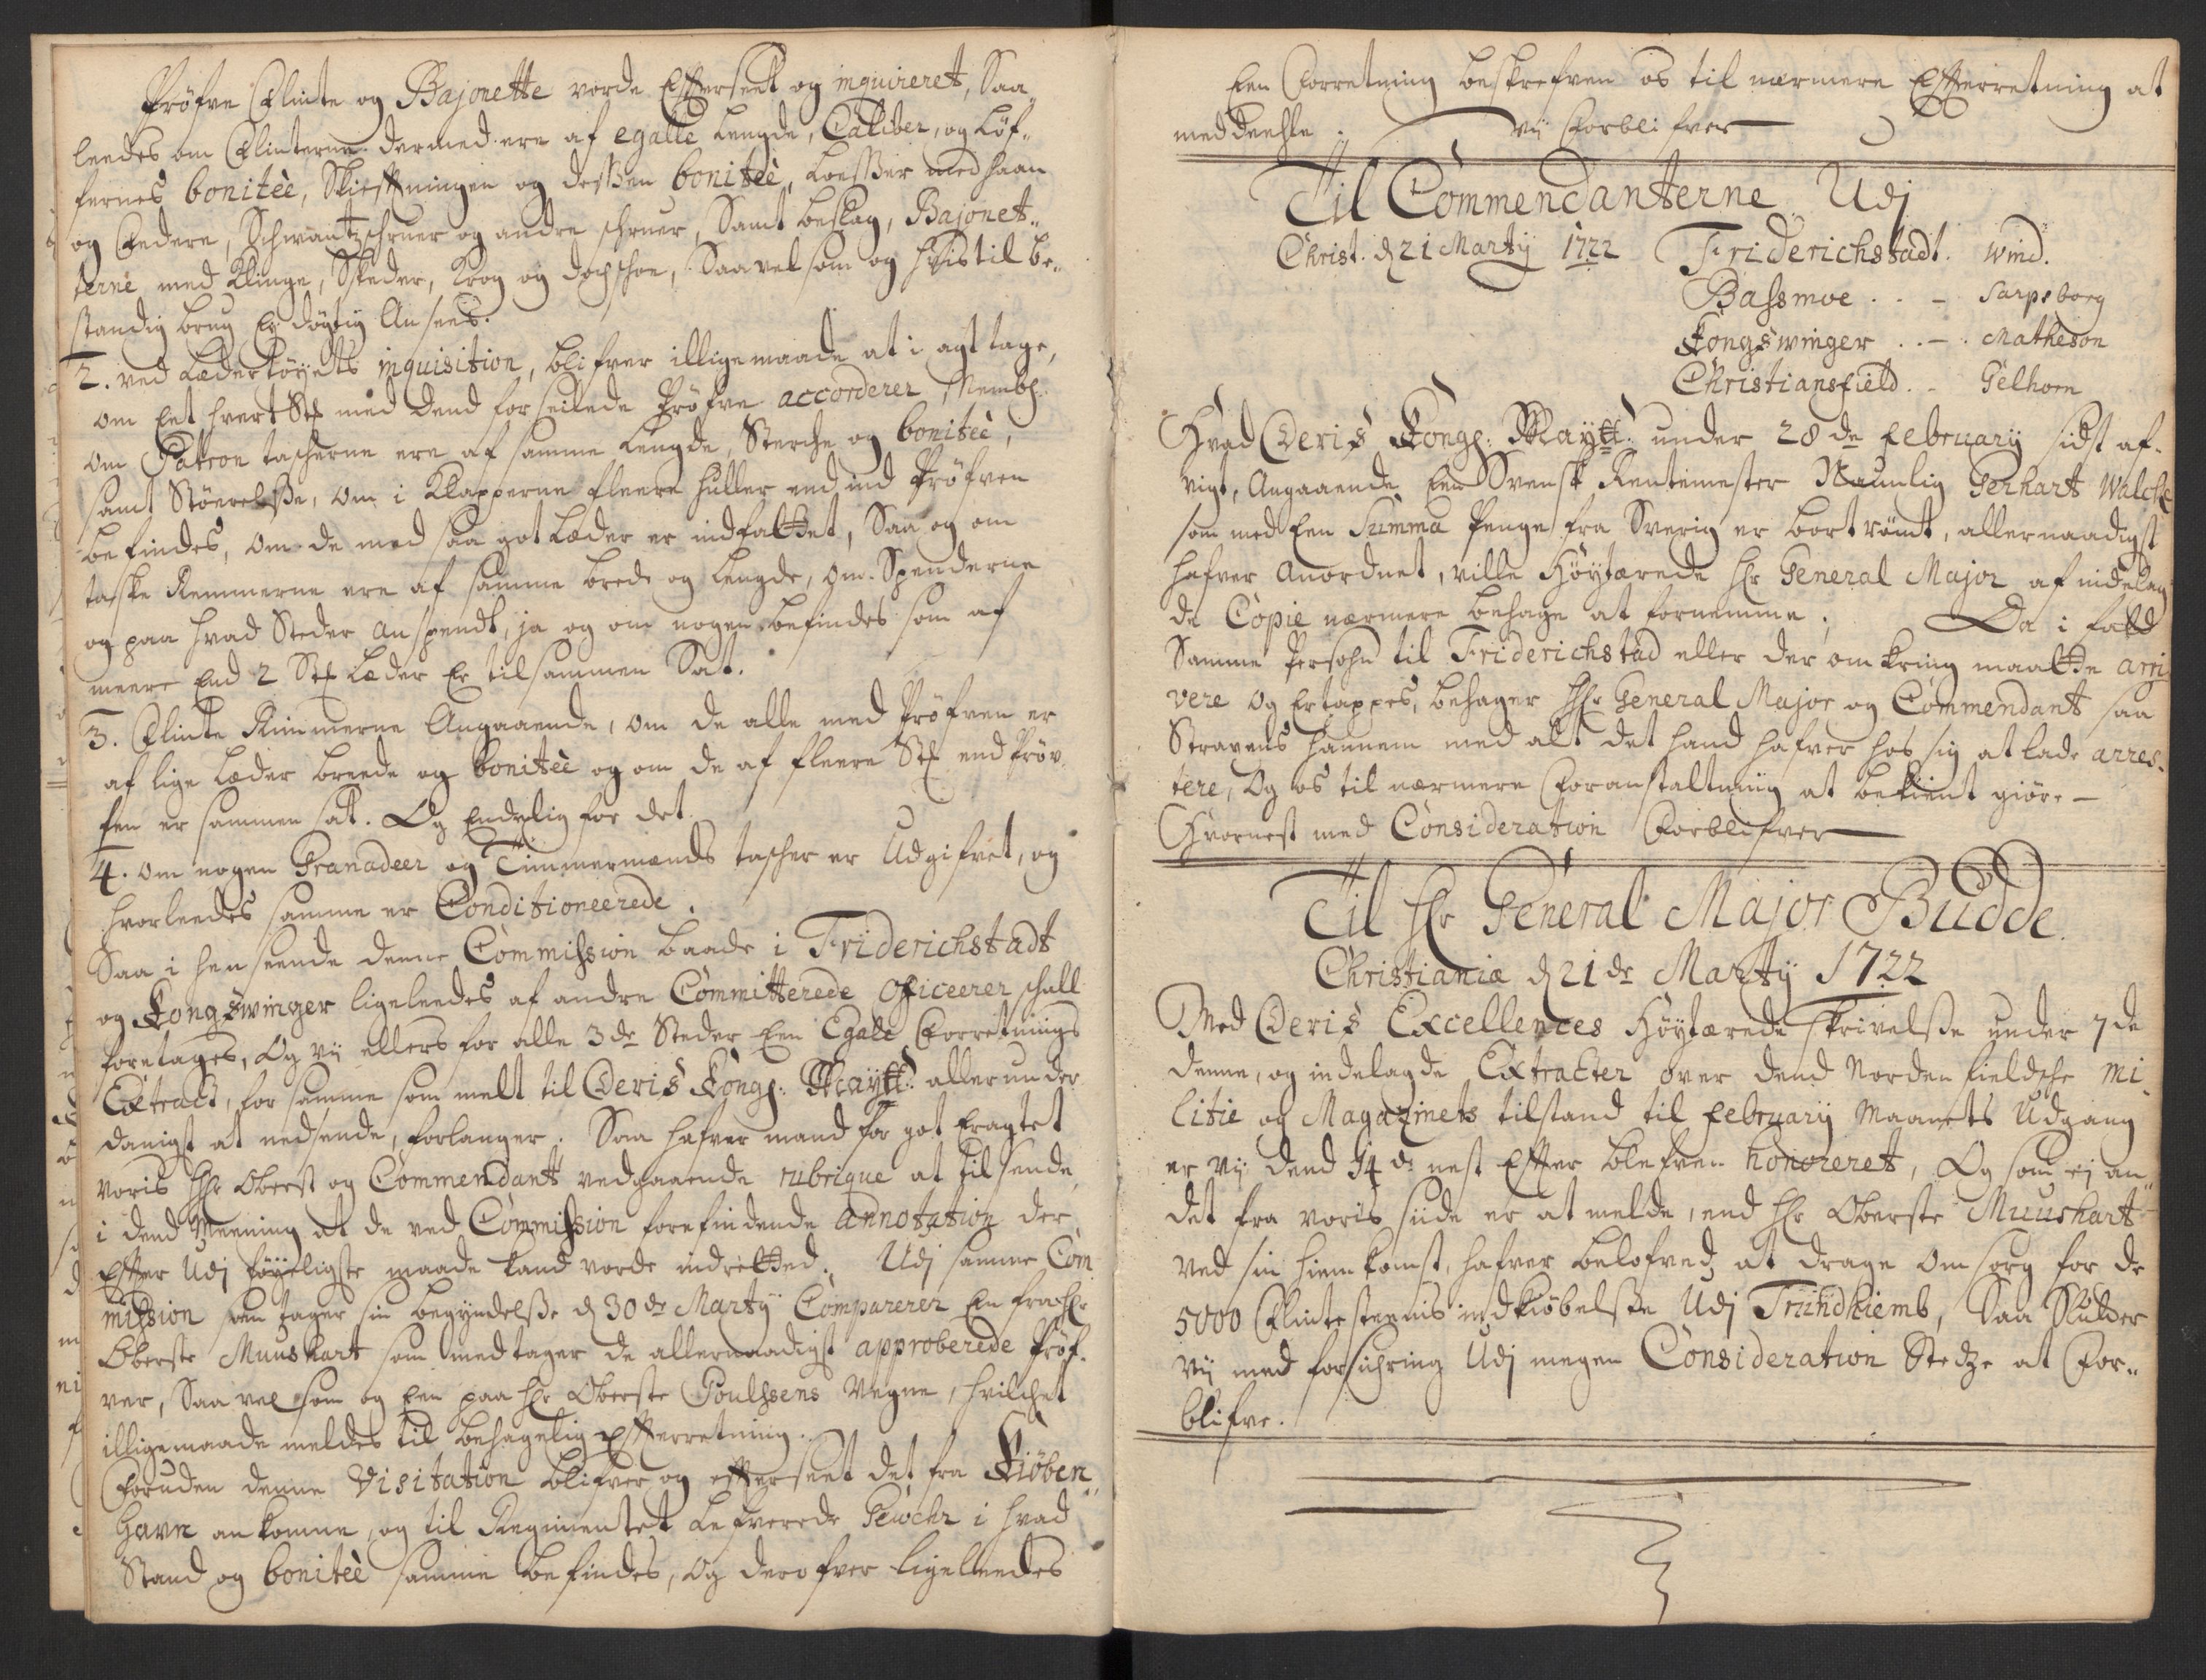 Pröfve Flinte og Bajonette vorde Efterseet og inquireret, Saa„
leedes om Flinterne dermed ere af egalle Lengde, Caliber, og Löf„
fernes bonitèe, Skieftningen og dessen bonitèe, Laasser med Haan
og Federe, Schwantzschruer og andre schruer, Samt beslag, Bajonet„
terne med Klinge, Skeder, Krog og dopschoe, Saavelsom og hvis til be„
standig brug Ey dögtig Ansees.
2. ved Lædertöyets inquisition, blifver illigemaade at i agt tage,
om Eet hvert Stk med dend forseilede Pröfve accorderer, Nembl:
om Patron taskerne ere af samme Lengde, Sterche og bonitèe,
samt Störrelsse, om i Klapperne fleere huller end ind Pröfven
befindes, om de med saa got Læder er indfattet, Saa og om
taske Remmerne ere af samme brede og Lengde, om Spenderne
og paa hvad Steder anspendt, ja og om nogen befindes som af
meere End 2 Stk Læder Er tilsammen Sat.
3. Flinte Rimmerne Angaaende, om de alle med Pröfven er
af lige Læder breede og bonitèe og om de af fleere Stk end Pröv„
fen er sammen sat. Og Endelig for det
4. om nogen Granadeer og Timmermænds tascher er Udgifvet, og
hvorleedes samme er Conditioneerede.
Saa i henseende denne Commission baade i Friderichstadt
og Kongswinger ligeleedes af andre Committerede officeerer schall
foretages, Og vij ellers for alle 3de Steder Een Egale Forretnings
Extract, for samme som melt til Deris Kongl: Maytt: allerunder
danigst at nedsende, forlanger. Saa hafver mand for got Eragtet
voris Hr Oberst og Commendant vedgaaende rubrique at tilsende,
i dend Meening at de ved Commission forefindende annotation der
efter Udj föyeligste maade kand vorde indretted. Udj samme Com
mission som tager sin begyndelsse d 30de Martij Comparerer En fra Hr
Oberste Muushart som medtager de allernaadigst approberede Pröf„
ver, Saavelsom og Een paa Hr Oberste Poulssens Vegne, hvilchet
illigemaade meldes til behagelig Efterretning.
Foruden denne Visitation blifver og efterseet det fra Kiöben„
havn ankomne, og til Regimentet Lefverede Gewehr i hvad
Stand og bonitèe samme befindes, og derofver ligeleedes
Een Forretning beskrefven os til nærmere Efterretning at
meddeehle. Vij Forblifver
Til Commendanterne Udj
Christ. d 21 Martij 1722 Friderichstadt. Wind.
Bassmoe . . - Sarpsborg
Kongswinger . . - . Matheson
Christiansfield . - Gelhorn
Hvad Deris Kongl: Maytt: under 28de February sidst af„
vigt, Angaaende Een Svensk Rentemester Naunlig Gerhart Walck
som med Een Summa Penge fra Sverig er bortrömt, allernaadigst
hafver Anordnet, ville Höytærede Hr General Major af indelag
de Copie nærmere behage at fornemme. Da i fald
Samme Persohn til Friderichstad eller der omkring maatte arri
vere og Ertappes, behager Hr General Major og Commendant saa
Stravens hannem med alt det hand hafver hos sig at lade arres„
tere, Og os til nærmere Foranstaltning at bekient giöre –
Hvornest med Consideration Forblifver
Til Hr General Major Budde.
Christianiæ d 21de Martij 1722
Med Deris Excellences Höytærede skrivelsse under 7de
denne, og indelagde Extracter over dend Nordenfieldsche Mi„
litie og Magazinets tilstand til February Maanets Udgang
er vij dend 14de nest Efter blefven honoreret, Og som ej an„
det fra voris siide er at melde, end Hr Oberste Muushart
ved sin hiemkomst, hafver belofved at drage omsorg for de
5000 Flintesteenis indkiöbelsse Udj Trundhiemb, Saa Slutter
vij med forsichring Udj megen Consideration Stedze at For„
blifve.